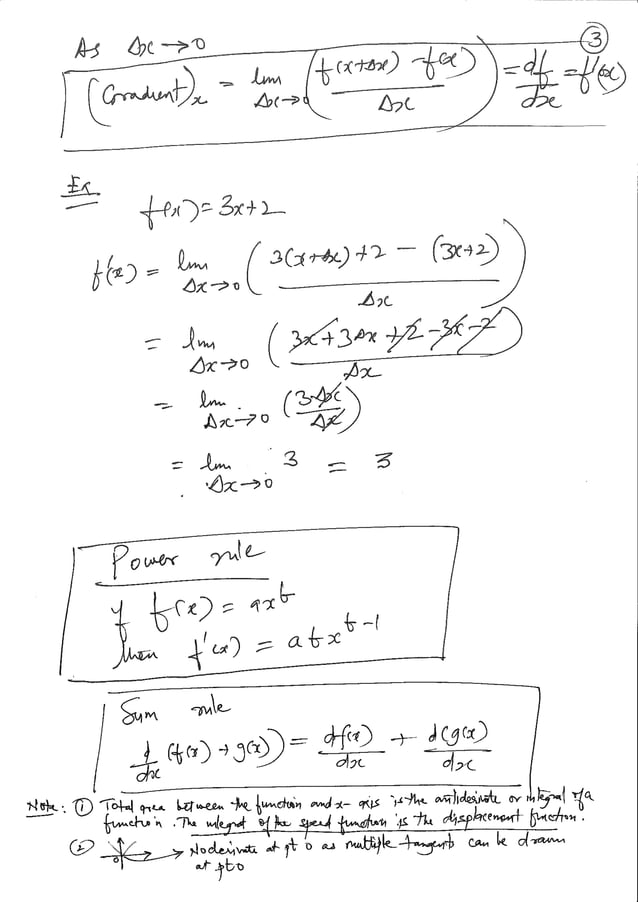 3
As Δx → 0
(Gradient)ₓ = lim Δx→0 ( (f(x+Δx) - f(x)) / Δx ) = df/dx = f'(x)
Ex
f(x) = 3x+2
f'(x) = lim Δx→0 ( (3(x+Δx)+2 - (3x+2)) / Δx )
= lim Δx→0 ( (3x+3Δx+2-3x-2) / Δx )
= lim Δx→0 (3Δx / Δx)
= lim Δx→0 3 = 3
Power rule
If f(x) = ax^b
then f'(x) = abx^(b-1)
Sum rule
d/dx (f(x) + g(x)) = df(x)/dx + d(g(x)/dx
Note: ① Total area between the function and x-axis is the antiderivate or integral of a
function. The integral of the speed function is the displacement function.
② 0 → No derivate at pt 0 as multiple tangents can be drawn
at pt 0